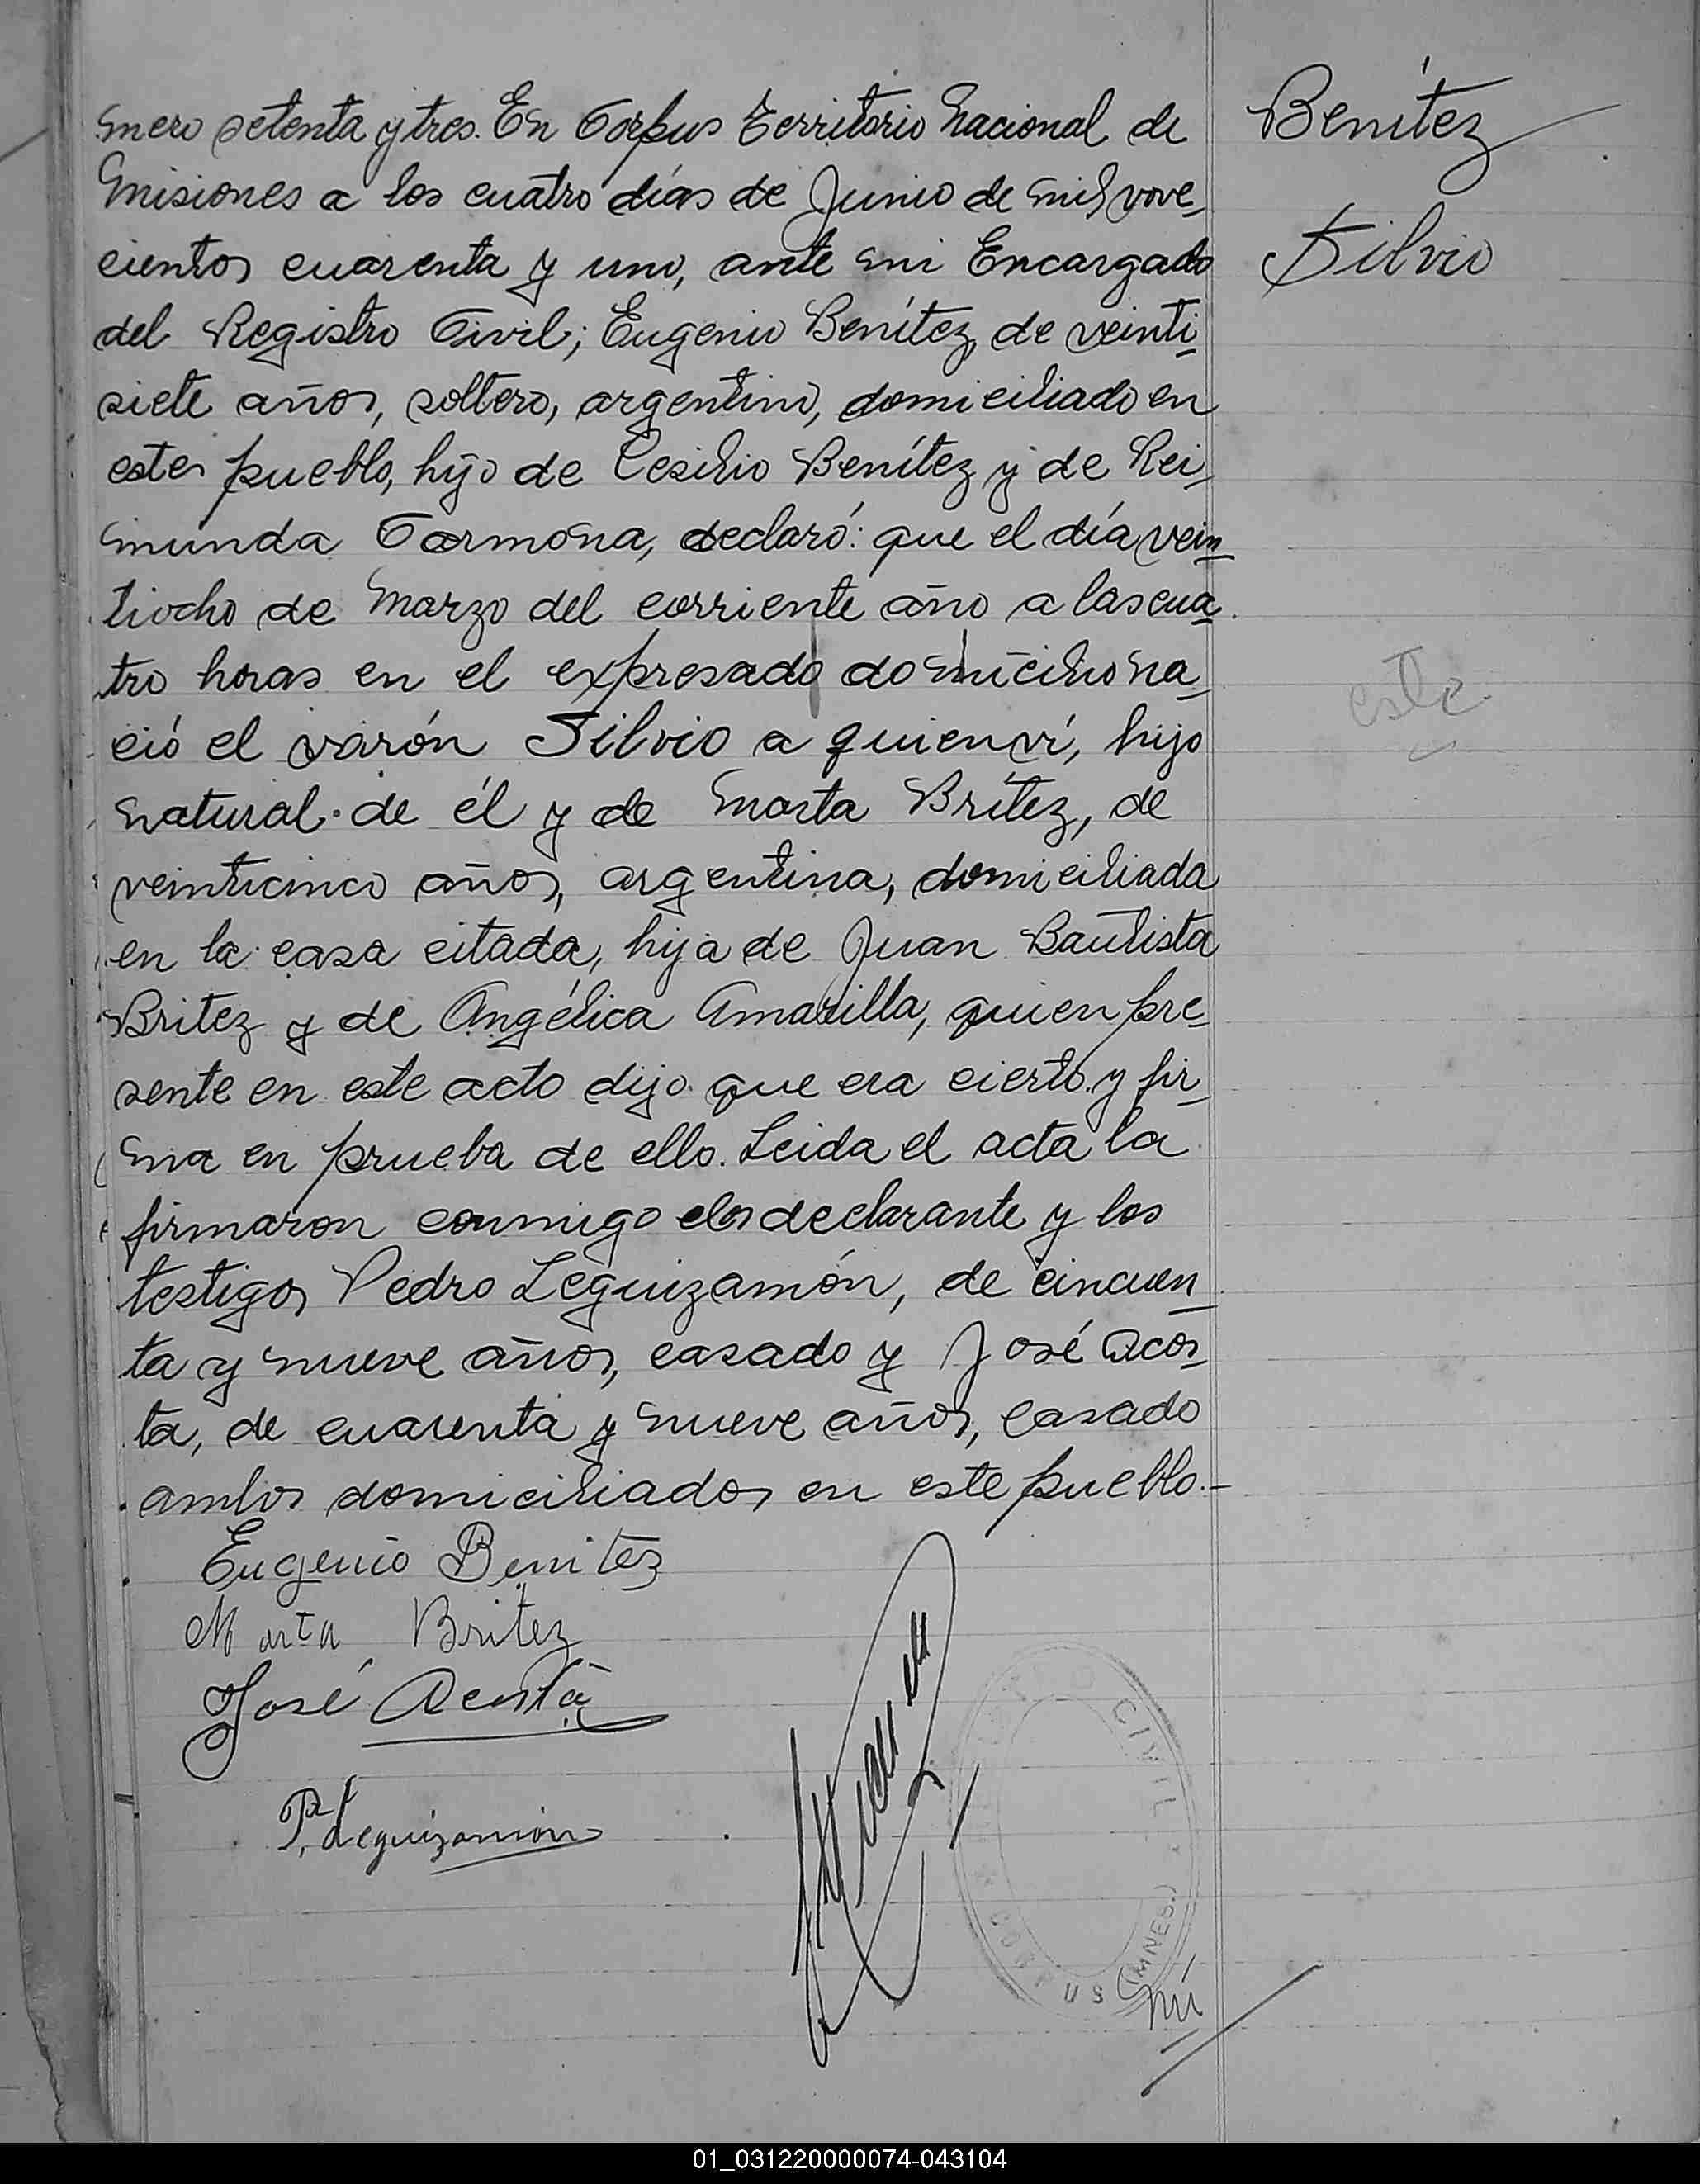 mero setenta y tres. En Corpus Territorio Nacional de
Misiones a los cuatro días de Junio de mil nove-
cientos cuarenta y uno, ante mi Encargado
del Registro Civil; Eugenio Benítez, de veinti-
siete años, soltero, argentino, domiciliado en
este pueblo, hijo de Cesilio Benítez y de Rei-
munda Carmona, declaró: que el día vein-
tiocho de Marzo del corriente año a las cua-
tro horas en el expresado domicilio na-
ció el varón Silvio a quien ví, hijo
natural de él y de Marta Brítez, de
veinticinco años, argentina, domiciliada
en la casa citada, hija de Juan Bautista
Britez y de Angélica Amarilla, quien pre-
sente en este acto dijo que era cierto y fir-
ma en prueba de ello. Leida el acta la
firmaron conmigo el declarante y los
testigos Pedro Leguizamón, de cincuen-
ta y nueve años, casado y José Acos-
ta, de cuarenta y nueve años, casado
ambos domiciliados en este pueblo.-
Eugenio Benitez
Marta Britez
José Acosta
P. Leguizamón
Benítez
Silvio
este
CIVIL
CORPUS (MNES.)
01_031220000074-043104